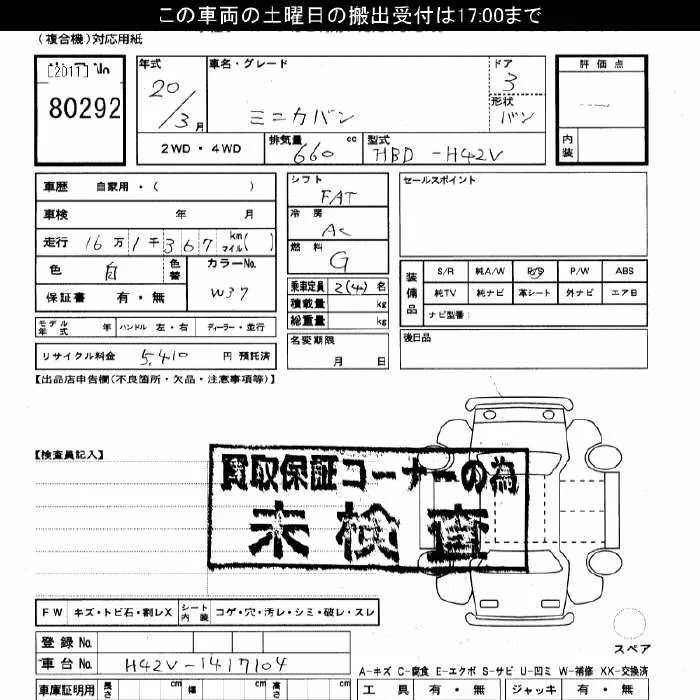 この車両の土曜日の搬出受付は17:00まで
(複合機)対応用紙
80292
年式 20/3月
車名・グレード ミニカバン
ドア 3
形状 バン
評価点
内装
2WD・4WD
排気量 660 cc
型式 HBD-H42V
車歴 自家用・( )
車検 年 月
走行 16万1千367 km マイル( )
色 白 色替
カラーNo. W37
保証書 有・無
モデル年式 年 ハンドル 左・右 ディーラー・並行
リサイクル料金 5,410 円 預託済
シフト FAT
冷房 AC
燃料 G
乗車定員 2(4)名
積載量 kg
総重量 kg
名変期限 月 日
セールスポイント
装備品
S/R 純A/W P/S P/W ABS
純TV 純ナビ 革シート 外ナビ エアB
ナビ型番:
後日品
【出品店申告欄(不良箇所・欠品・注意事項等)】
【検査員記入】
買取保証コーナーの為
未検査
FW キズ・トビ石・割レX シート内装 コゲ・穴・汚レ・シミ・破レ・スレ
スペア
登録No.
車台No. H42V-1417104
A-キズ C-腐食 E-エクボ S-サビ U-凹ミ W-補修 XX-交換済
車庫証明用 長さ cm 幅 cm 高さ cm
工具 有・無 ジャッキ 有・無